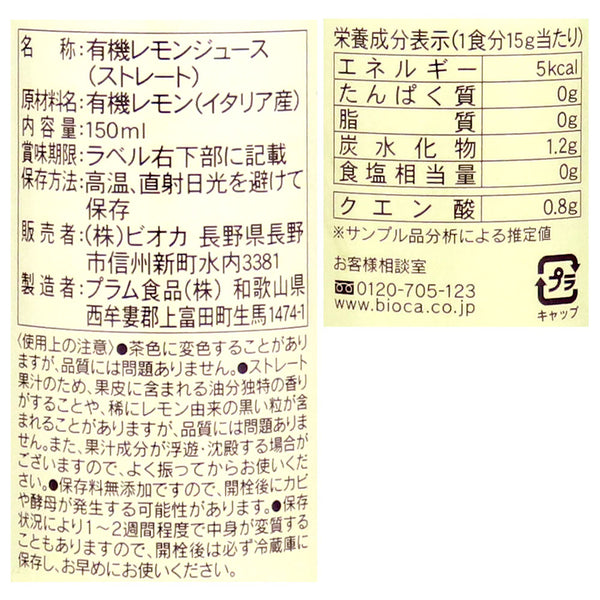 名称:有機レモンジュース
(ストレート)
原材料名:有機レモン(イタリア産)
内容量:150ml
賞味期限:ラベル右下部に記載
保存方法:高温、直射日光を避けて
保存
販売者:(株)ビオカ 長野県長野
市信州新町水内3381
製造者:プラム食品(株) 和歌山県
西牟婁郡上富田町生馬1474-1
〈使用上の注意〉●茶色に変色することがあり
ますが、品質には問題ありません。●ストレート
果汁のため、果皮に含まれる油分独特の香り
がすることや、稀にレモン由来の黒い粒が含
まれることがありますが、品質には問題ありま
せん。また、果汁成分が浮遊・沈殿する場合が
ございますので、よく振ってからお使いくだ
さい。●保存料無添加ですので、開栓後にカビ
や酵母が発生する可能性があります。●保存
状況により1〜2週間程度で中身が変質する
こともありますので、開栓後は必ず冷蔵庫に
保存し、お早めにお使いください。
栄養成分表示(1食分15g当たり)
エネルギー 5kcal
たんぱく質 0g
脂質 0g
炭水化物 1.2g
食塩相当量 0g
クエン酸 0.8g
※サンプル品分析による推定値
お客様相談室
0120-705-123
www.bioca.co.jp
プラ
キャップ